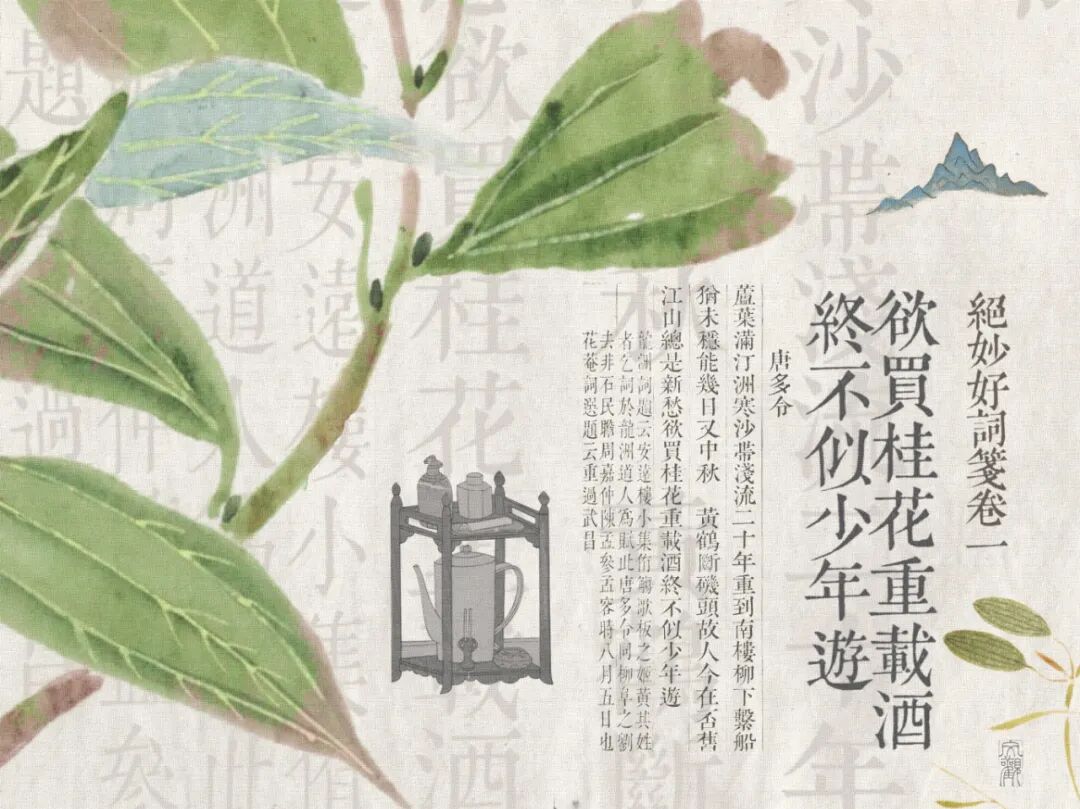 絕妙好詞箋卷一
欲買桂花重載酒
終不似少年遊
唐多令
蘆葉滿汀洲寒沙帶淺流二十年重到南樓柳下繫船
猶未穩能幾日又中秋　黃鶴斷磯頭故人今在否舊
江山總是新愁欲買桂花重載酒終不似少年遊
龍洲詞題云安遠樓小集侑觴歌板之姬黃其姓
者乞詞於龍洲道人爲賦此唐多令同柳阜之劉
去非石民瞻周嘉仲陳孟參孟容時八月五日也
花菴詞選題云重過武昌